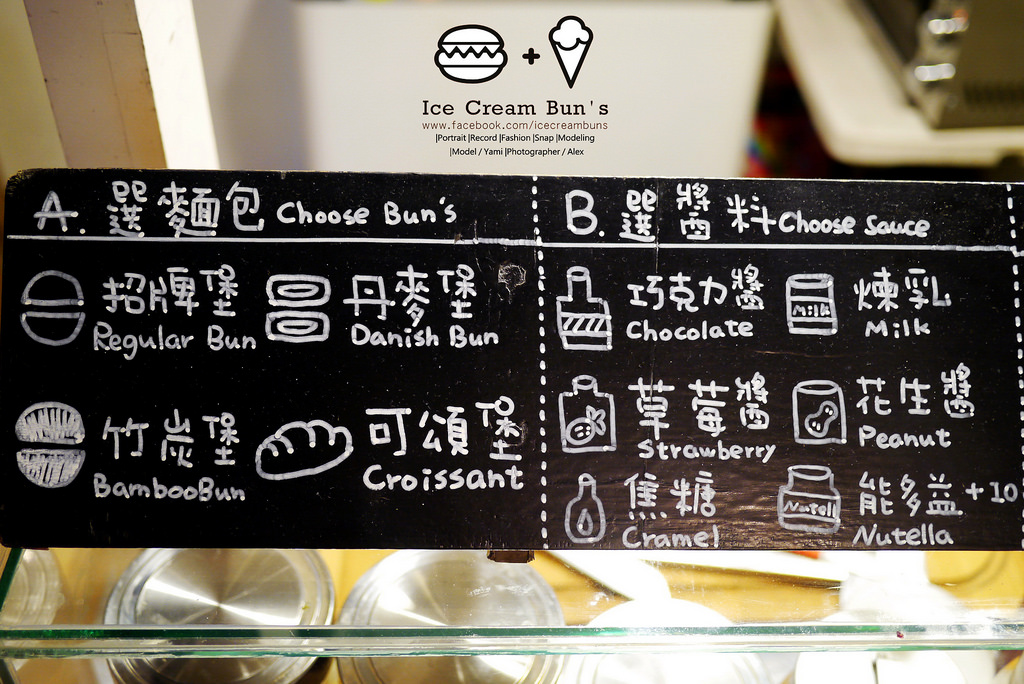 Ice Cream Bun's
www.facebook.com/icecreambuns
|Portrait |Record |Fashion |Snap |Modeling
|Model / Yami |Photographer / Alex
A. 選麵包 Choose Bun's
招牌堡
Regular Bun
丹麥堡
Danish Bun
竹炭堡
BambooBun
可頌堡
Croissant
B. 選醬料 Choose Sauce
巧克力醬
Chocolate
Milk
煉乳
Milk
草莓醬
Strawberry
花生醬
Peanut
焦糖
Cramel
Nutell
能多益 +10
Nutella